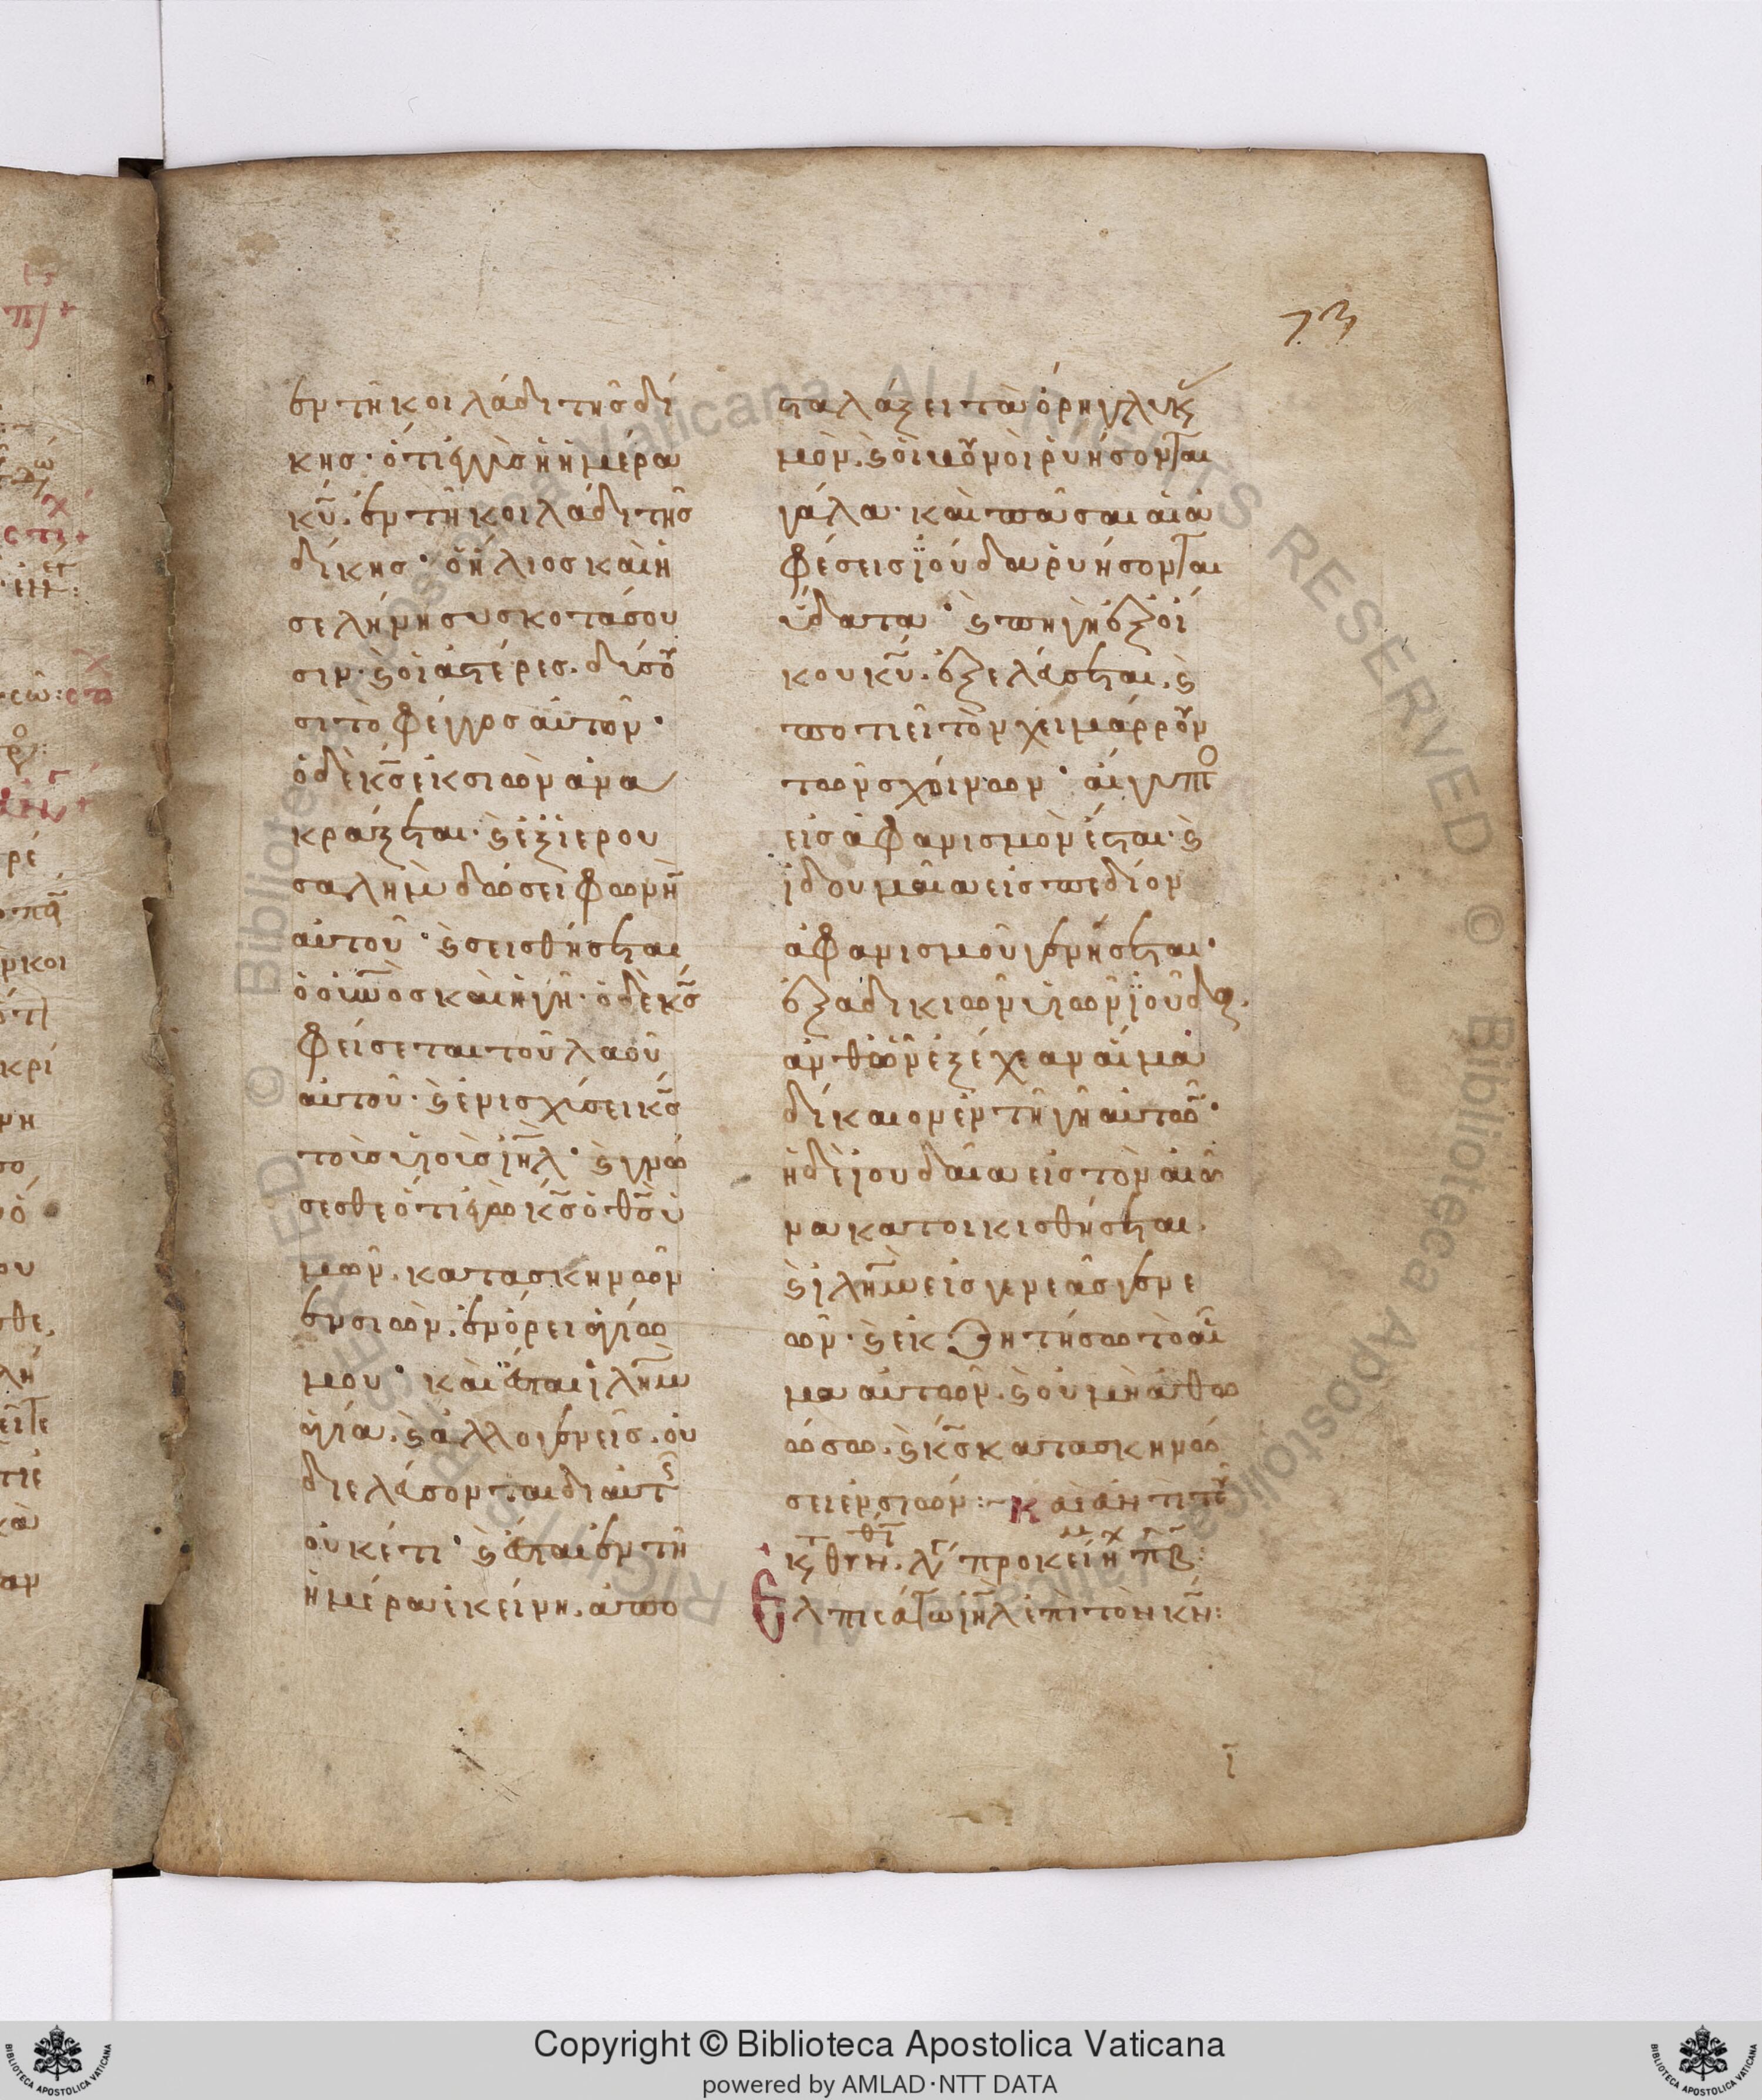 73
ἐν τῆ κοιλάδι τῆσ δί
κησ· ὅτι ἐγγὺσ ἡ ἡμέρα
κ̅υ̅. ἐν τῆ κοιλάδι τῆσ
δίκησ· ὁ ἥλιοσ καὶ ἡ
σελήνη συσκοτάσου
σιν. ϗ οἱ ἀστέρεσ. δύσου
σι τὸ φέγγοσ αὐτῶν·
ὁ δὲ κ̅σ̅ ἐκ σιὼν ἀνα
κράξεται. ϗ ἐξ ϊερου
σαλὴμ δώσει φωνὴν
αὐτοῦ· ϗ σεισθήσεται
ὁ οὐ̅ν̅οσ καὶ ἡ γῆ· ὁ δὲ κ̅σ̅
φείσεται τοῦ λαοῦ
αὐτοῦ. ϗ ἐνισχύσει κ̅σ̅
τοὺσ υἱοὺσ ι̅η̅λ̅· ϗ γνώ
σεσθε ὅτι ἐγὼ κ̅σ̅ ὁ θ̅σ̅ ὑ
μῶν. κατασκηνῶν
ἐν σιὼν. ἐν ὄρει ἁγίω
μου· καὶ ἔσται ι̅λ̅η̅μ̅
ἁγία. ϗ ἀλλογενεῖσ. οὐ
διελεύσονται δι αὐτῆσ
οὐκέτι· ϗ ἔσται ἐν τῆ
ἡμέρα ἐκείνη. ἀπο
σταλάξει τὰ ὄρη γλυκασ
μόν. ϗ οἱ βουνοὶ ῥυήσονται
γάλα. καὶ πᾶσαι αἱ ἀ
φέσεισ ϊούδα ῥυήσονται
ὕδατα· ϗ πηγὴ ἐξ οἴ
κου κ̅υ̅. ἐξελεύσεται. ϗ
ποτιεῖ τὸν χειμάρρουν
τῶν σχοίνων· αἴγυπτος
εἰσ ἀφανισμὸν ἔσται. ϗ
ἰδουμαία εἰσ πεδίον
ἀφανισμοῦ γενήσεται·
ἐξ ἀδικιῶν υἱῶν ϊούδα.
ἀνθ ὧν ἐξέχεαν αἷμα
δίκαιον ἐν τῆ γῆ αὐτῶν·
ἡ δὲ ἰουδαία εἰσ τὸν αἰῶ
να κατοικισθήσεται.
ϗ ι̅λ̅η̅μ̅ εἰσ γενεᾶσ γενε
ῶν. ϗ ἐκζητήσω τὸ αἷ
μα αὐτῶν. ϗ οὐ μὴ ἀθω
ώσω. ϗ κ̅σ̅ κατασκηνώ
σει ἐν σιών:
Ἐλπισάτω ι̅η̅λ̅ ἐπὶ τὸν κ̅ν̅:
Copyright © Biblioteca Apostolica Vaticana
powered by AMLAD·NTT DATA